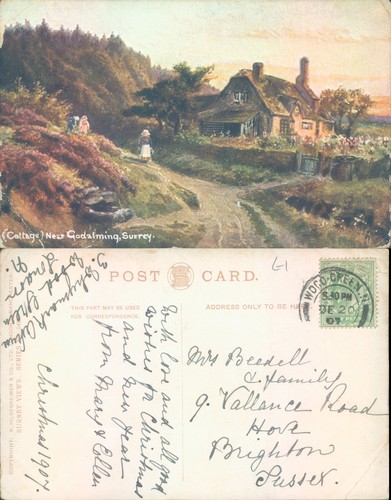 (Cottage) Near Godalming, Surrey.
POST CARD.
THIS PART MAY BE USED
FOR CORRESPONDENCE.
ADDRESS ONLY TO BE
£1
WOOD-GREEN. N
5.30 PM
DE 20
07
Wood Green
London
N.
Christmas 1907.
With love and all good
wishes for Christmas
and New Year
from Mary & Ellen
Mrs Beedell
& Family
9. Vallance Road
Hove
Brighton
Sussex.